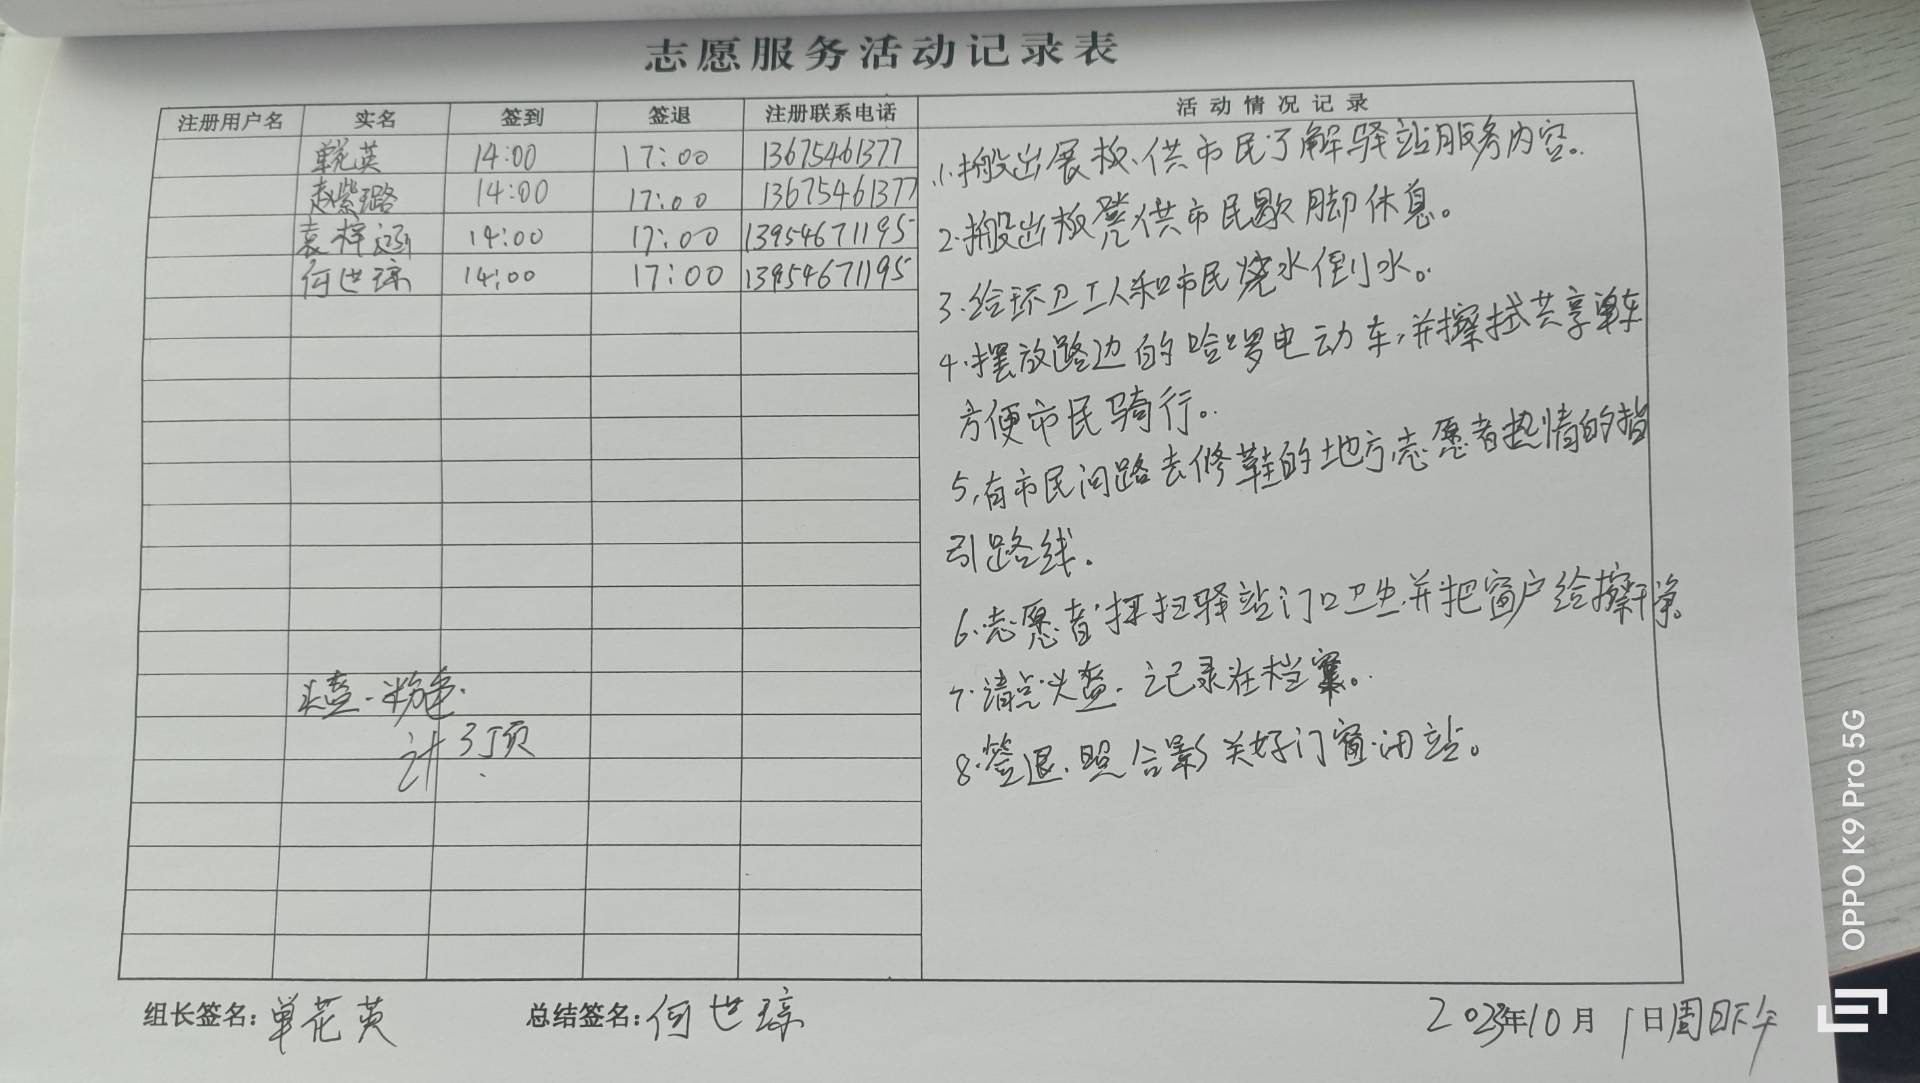 志愿服务活动记录表
注册用户名 实名 签到 签退 注册联系电话 活动情况记录
单花英 14:00 17:00 13675461377
赵紫璐 14:00 17:00 13675461377
袁梓涵 14:00 17:00 13954671195
何世琼 14:00 17:00 13954671195
头盔-粉色.
计3顶
1.搬出展板、供市民了解驿站服务内容。
2.搬出板凳供市民歇脚休息。
3.给环卫工人和市民烧水倒水。
4.摆放路边的哈啰电动车,并擦拭共享单车
方便市民骑行。
5,有市民问路去修鞋的地方,志愿者热情的指
引路线.
6.志愿者打扫驿站门口卫生,并把窗户给擦干净。
7.清点头盔.记录在档案。
8.签退.照合影关好门窗.闭站。
组长签名:单花英 总结签名:何世琼 2023年10月1日周日下午
OPPO K9 Pro 5G